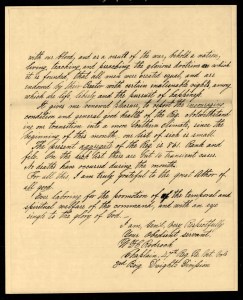 with our blood, and as a result of the war, behold a nation,
loving, teaching, and preaching the glorious doctrine on which
it is founded, that all men were created equal, and are
endowed by their Creator with certain inalienable rights, among
which are life, liberty and the pursuit of happiness.
It gives me renewed pleasure, to report the
condition and general good health of the Reg. notwithstanding
our transition into a more southern climate, since the
beginning of this month our list of sick is small.
The present aggregate of the Reg. is 781 rank and
file. On the sick list there are but 14 transient cases.
No deaths have occurred during the month.
For all this I am truly grateful to the great Author of
all good.
Ever laboring for the promotion of the temporal and
spiritual welfare of the command, and with an eye
single to the glory of God.
I am, Genl, Very Respectfully
Your Obedient servant
Chaplain, Reg
3rd Brig Division